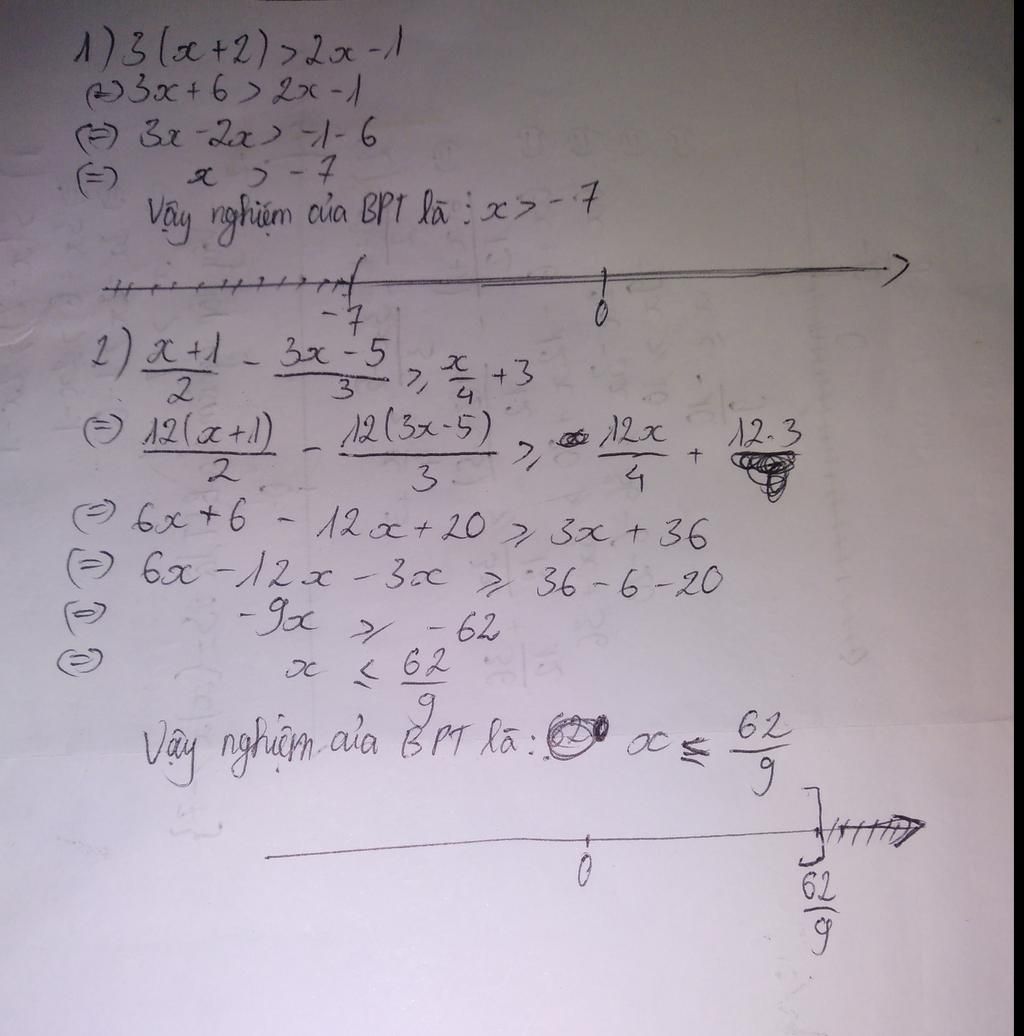 1) 3(x+2) > 2x-1
(=) 3x+6 > 2x-1
(=) 3x-2x > -1-6
(=) x > -7
Vậy nghiệm của BPT là: x > -7
-7 0
2) \frac{x+1}{2} - \frac{3x-5}{3} ≥ \frac{x}{4} + 3
(=) \frac{12(x+1)}{2} - \frac{12(3x-5)}{3} ≥ \frac{12x}{4} + 12.3
(=) 6x+6 - 12x+20 ≥ 3x+36
(=) 6x-12x-3x ≥ 36-6-20
(=) -9x ≥ -62
(=) x ≤ \frac{62}{9}
Vậy nghiệm của BPT là: x ≤ \frac{62}{9}
0 \frac{62}{9}